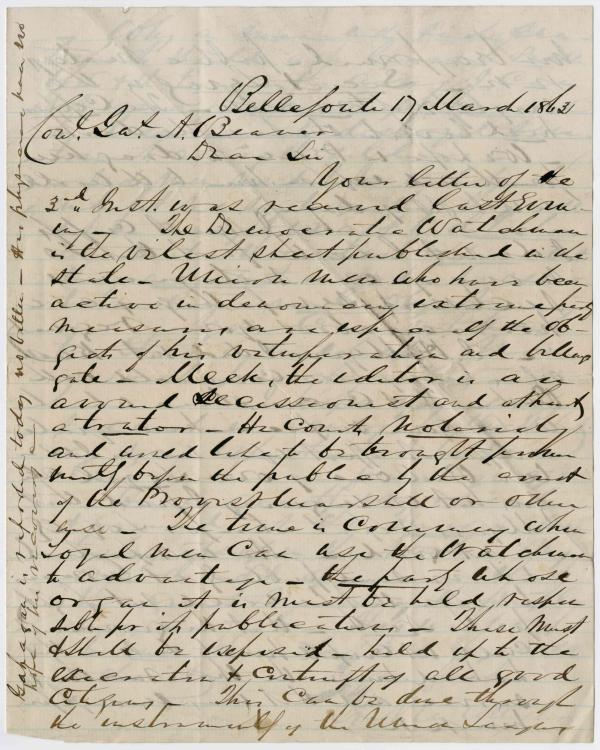 Bellefonte 17 March 1863
Col. Jas. A. Beaver
Dear Sir
Your letter of the
3rd Inst. was received last Even-
ing - The Democratic Watchman
is the vilest sheet published in the
state - Union men who have been
active in denouncing extreme party
measures, are especially the ob-
jects of his vituperation and billings
gate - Meek, the editor is an
avowed Secessionist and at heart
a traitor - He courts notoriety
and would like to be brought promi
nently before the public by the arrest
of the Provost Marshall or other
wise - The time is coming when
Loyal men can use the Watchman
to advantage - the party whose
organ it is must be held respon
sible for its publications - These must
& shall be exposed - held up to the
execration & contempt of all good
Citizens - This can be done through
the instrumentality of the Union Leagues
Gahagan is reported today no better - His physicians have no
hope of his recovery -